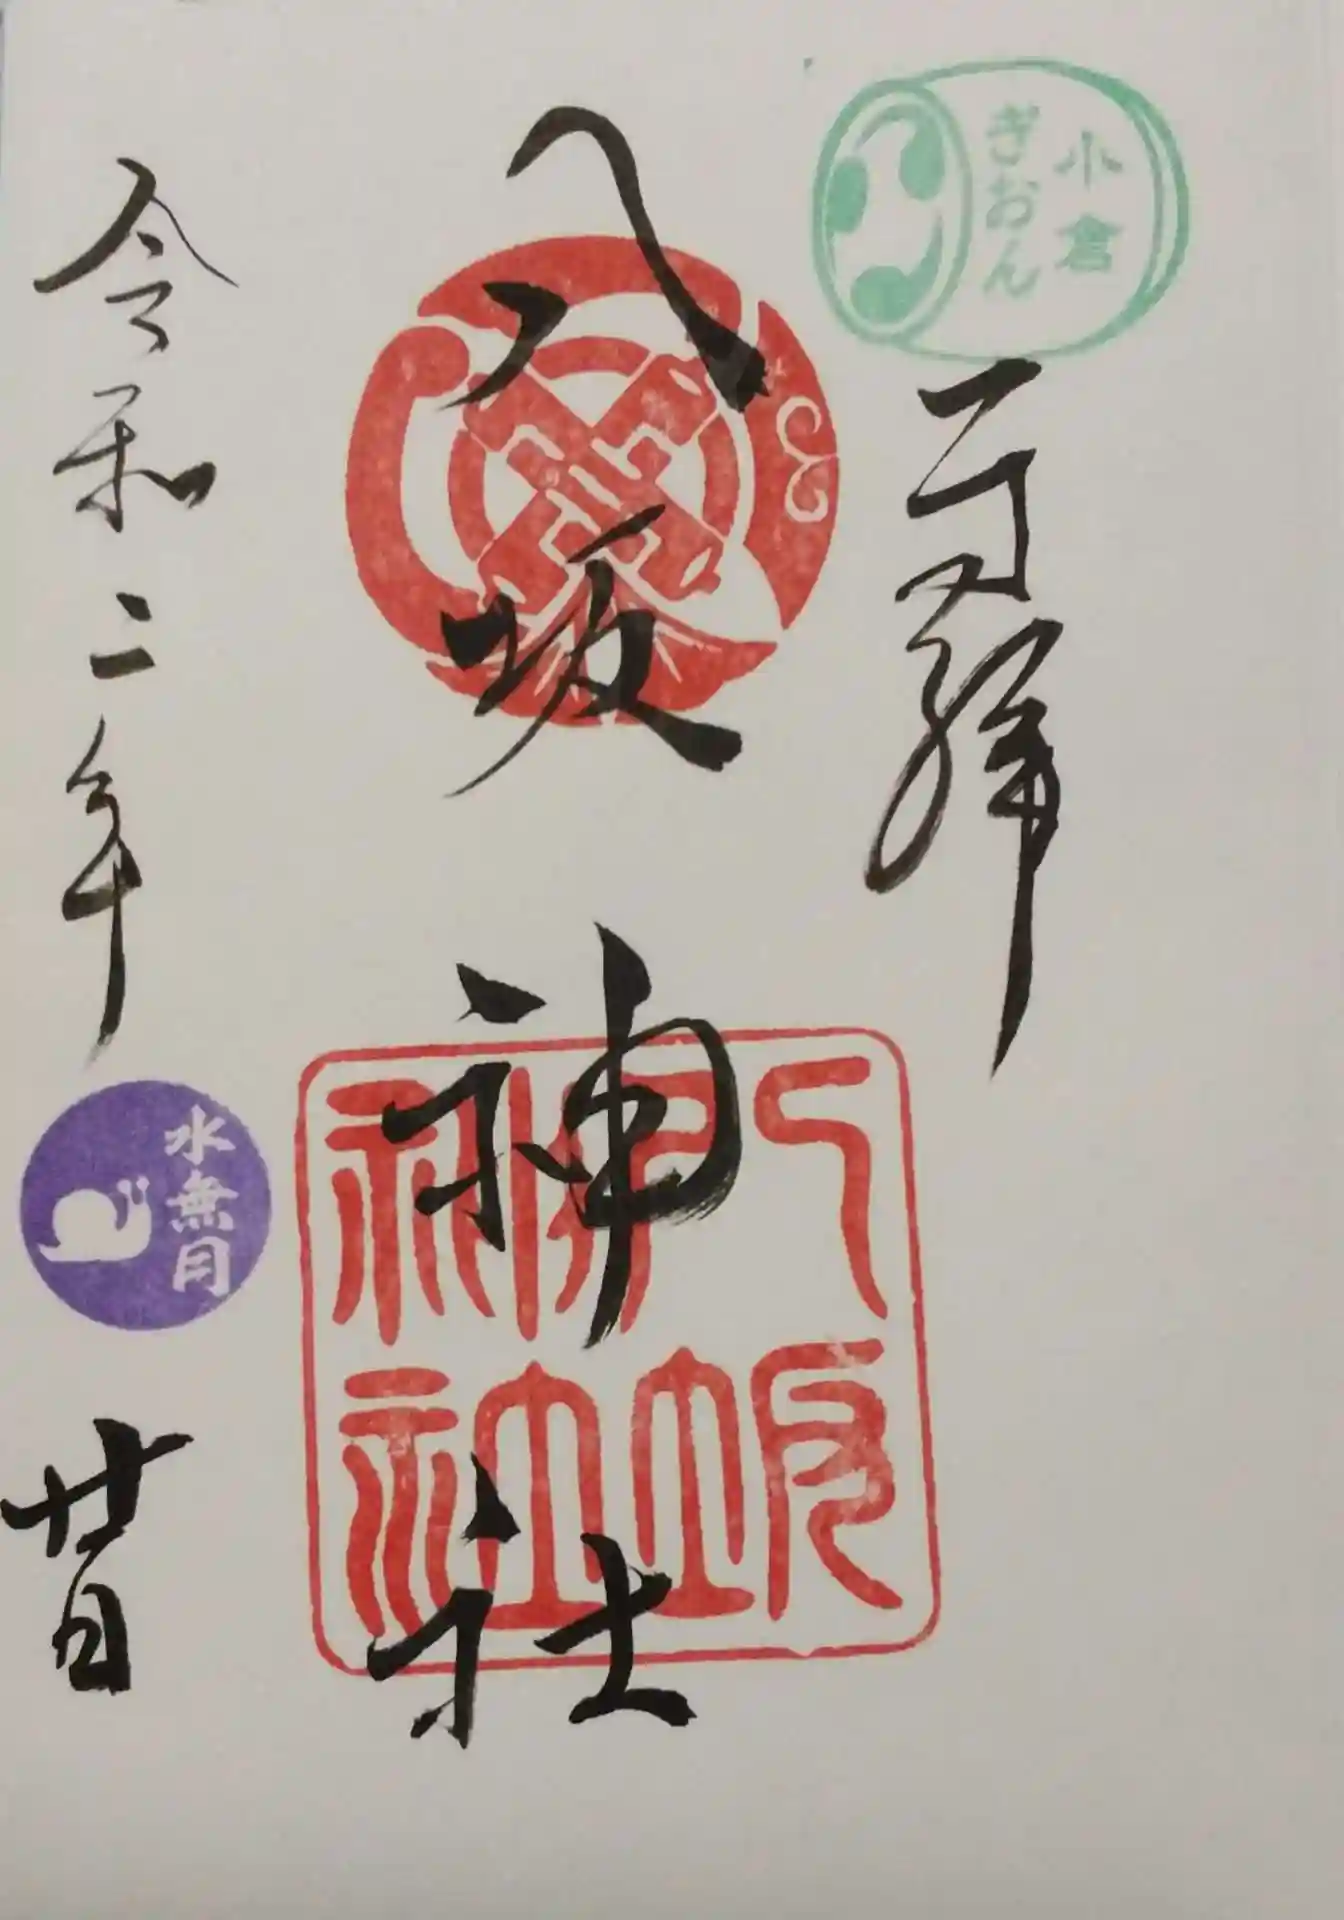 小倉
ぎおん
奉拝
八坂神社
八坂神社
令和二年
水無月
廿日